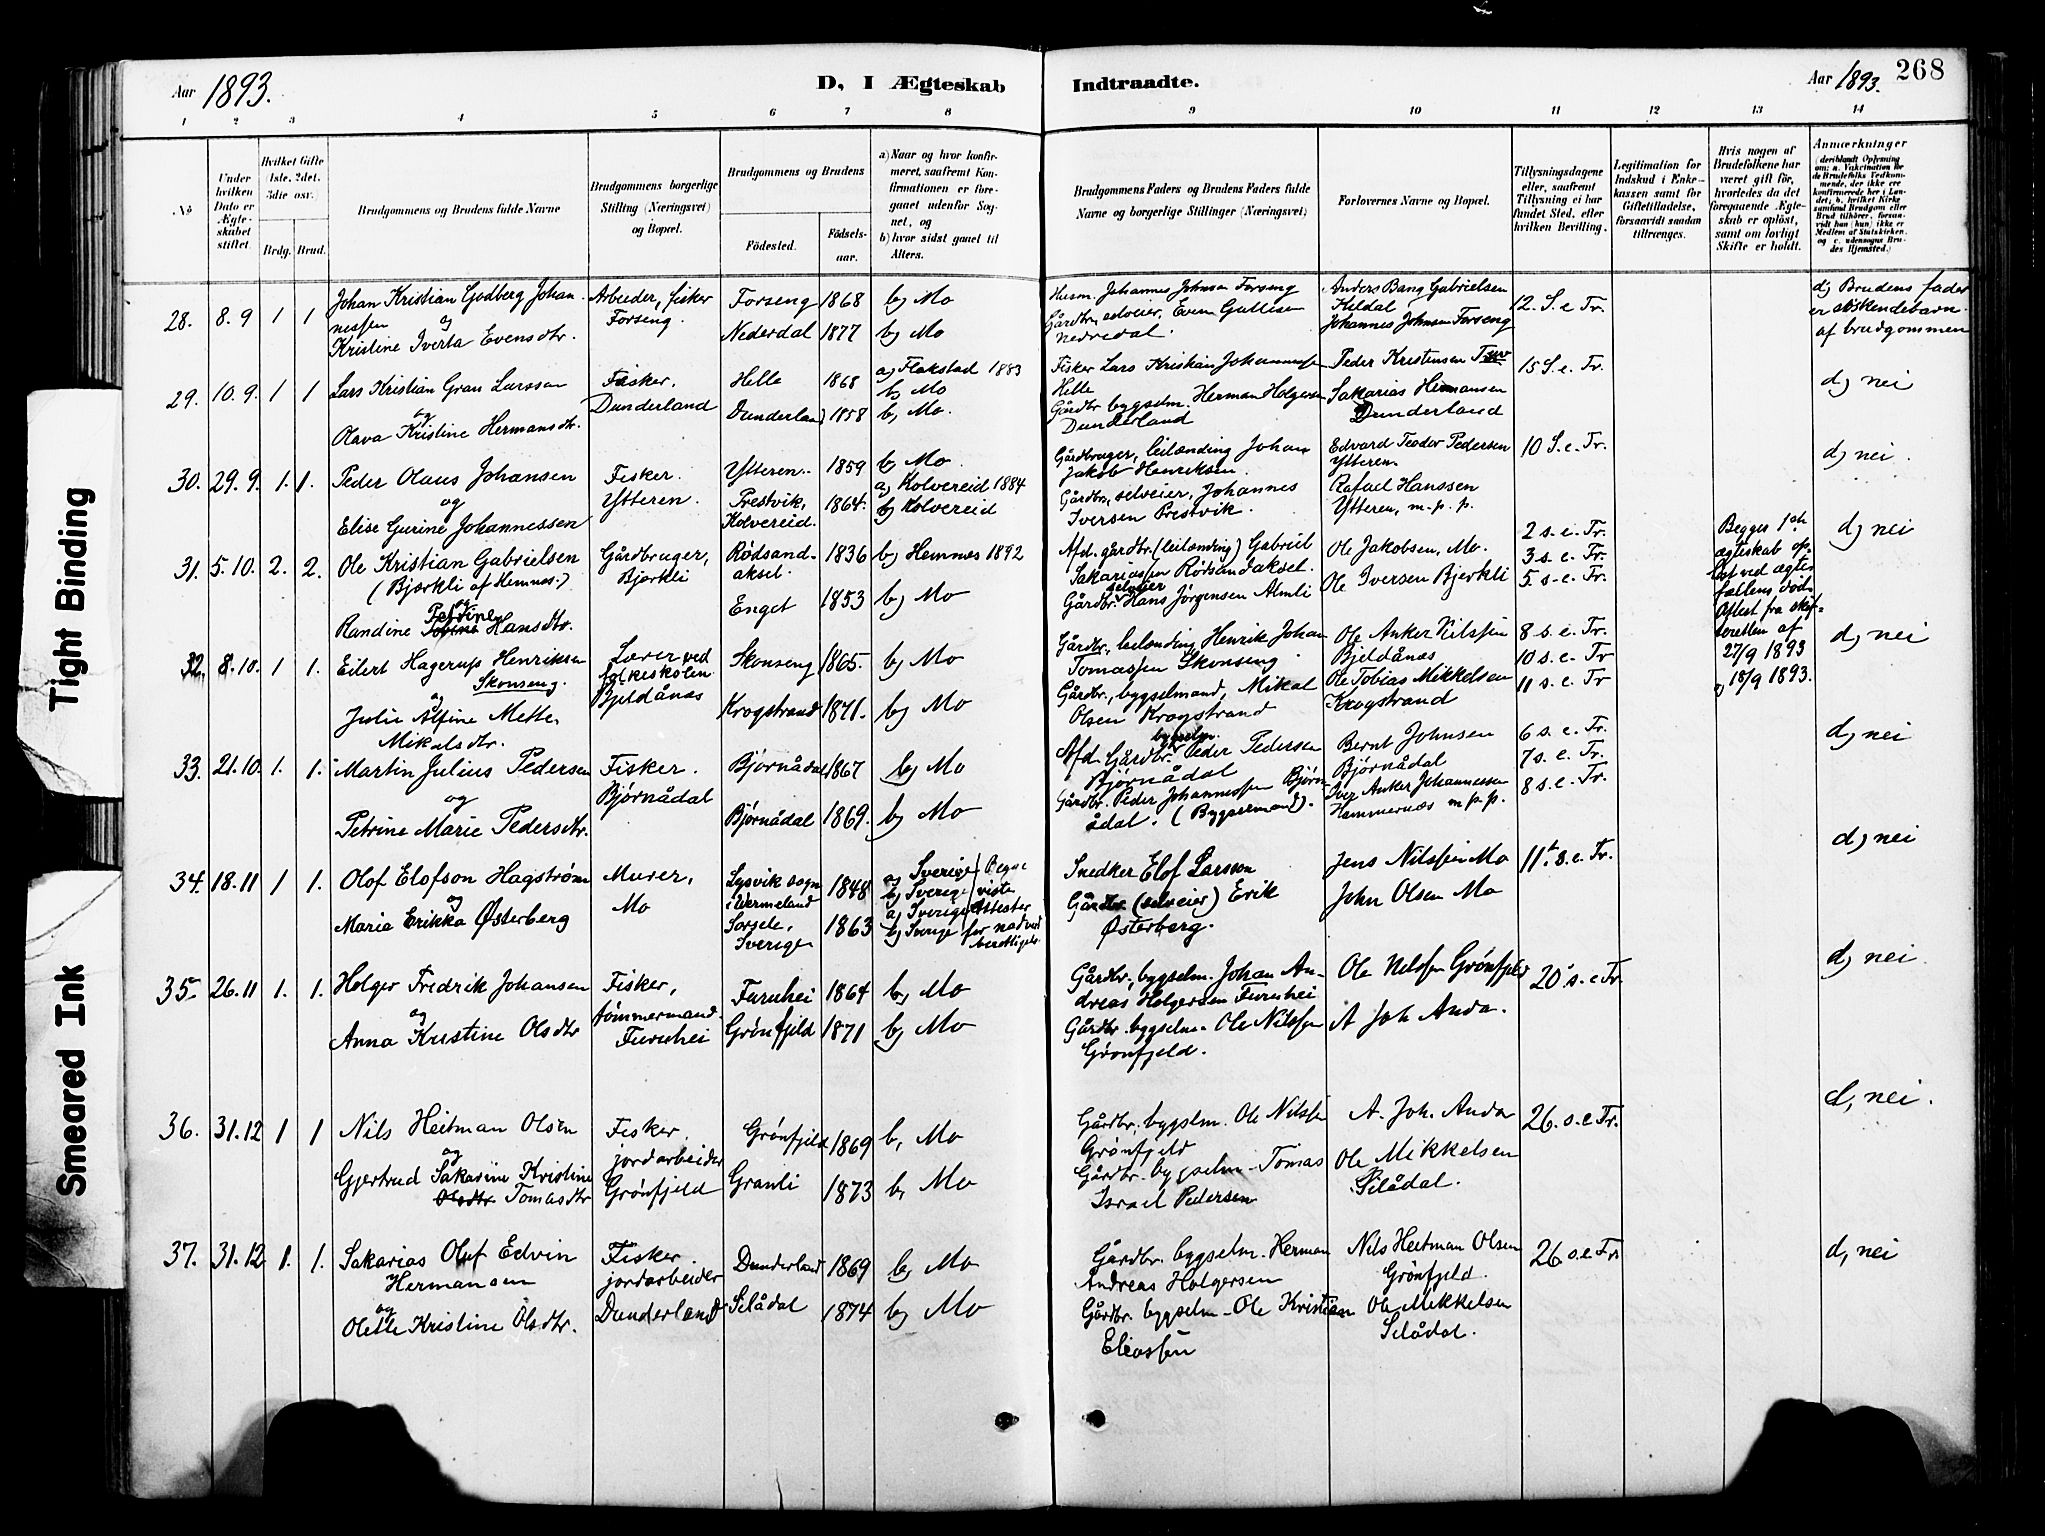 Aar 1893.
D, I Ægteskab
Indtraadte.
Aar 1893.
268
1 2 3 4 5 6 7 8 9 10 11 12 13 14
No
Under hvilken Dato er Ægteskabet stiftet.
Hvilket Gifte (1ste, 2det, 3die osv.
Brdg. Brud.
Brudgommens og Brudens fulde Navne
Brudgommens borgerlige Stilling (Næringsvei) og Bopæl.
Brudgommens og Brudens
Fødested.
Fødsels-aar.
a) Naar og hvor konfirmeret, saafremt Konfirmationen er foregaaet udenfor Sognet, og
b) hvor sidst gaaet til Alters.
Brudgommens Faders og Brudens Faders fulde Navne og borgerlige Stillinger (Næringsvei)
Forlovernes Navne og Bopæl.
Tillysningsdagene eller, saafremt Tillysning ei har fundet Sted, efter hvilken Bevilling.
Legitimation for Indskud i Enkekassen samt for Giftetilladelse, forsaavidt saadan tiltrænges.
Hvis nogen af Brudefolkene har været gift før, hvorledes da det foregaaende Ægteskab er opløst, samt om lovligt Skifte er holdt.
Anmærkninger
28. 8.9 1 1 Johan Kristian Godberg Johannessen
og
Kristine Iverta Evensdtr.
Arbeider, fisker
Forseng.
Forseng 1868 b) Mo
Nederdal 1877 b) Mo
Husm. Johannes Johnsen Forseng
Gårdbr., selveier, Even Gullesen
Nedredal.
Anders Bang Gabrielsen
Kildal
Johannes Johnsen Forseng
12. S. e. Tr.
d) Brudens fader
er søskendebarn
af brudgommen
29. 10.9. 1 1 Lars Kristian Gran Larssen
og
Olava Kristine Hermansdtr.
Fisker,
Dunderland
Helle 1868 a) Flakstad 1883
b) Mo
Dunderland 1858 b) Mo.
Fisker Lars Kristian Johannessen
Helle
Gårdbr. bygselm. Herman Holgersen
Dunderland
Peder Kristensen
Sakarias Hermansen
Dunderland
15 S. e. Tr.
d) nei
30. 29.9. 1. 1. Peder Olaus Johansen
og
Elise Gurine Johannessen
Fisker.
Ytteren.
Ytteren. 1859 b) Mo.
Prestvik, Kolvereid. 1864. a) Kolvereid 1884
b) Kolvereid
Gårdbruger, leilænding Johan
Jakob Henriksen.
Gårdbr., selveier, Johannes
Iversen Prestvik.
Edvard Teodor Pedersen
Ytteren.
Rafael Hanssen
Ytteren, m. p. p.
10 S. e. Tr.
d) nei.
31. 5.10. 2. 2. Ole Kristian Gabrielsen
(Bjerkli af Hemnes.)
og
Petrine
Randine Hansdtr.
Gårdbruger,
Bjerkli
Rødsandaksel. 1836 b) Hemnes 1892
Enget 1853 b) Mo
Afd. gårdbr. (leilænding) Gabriel
Sakariassen Rødsandaksel.
selveier
Gårdbr. Hans Jørgensen Almli
Ole Jakobsen, Mo.
Ole Iversen Bjerkli
2 s. e. Tr.
3 s. e. Tr.
5 s. e. Tr.
Begges 1ste
ægteskab opløst
ved ægtefællens død.
Attest fra skifteretten af
27/9 1893
og 18/9 1893.
d) nei
32. 8.10. 1 1. Eilert Hagerup Henriksen
Skonseng.
og
Julie Alfine Mette
Mikalsdtr.
Lærer ved
folkeskolen
Bjeldånes
Skonseng 1865. b) Mo
Krogstrand 1871. b) Mo
Gårdbr., leilænding Henrik Johan
Tomassen Skonseng
Gårdbr., bygselmand, Mikal
Olsen Krogstrand
Ole Anker Nilssen
Bjeldånes
Ole Tobias Mikkelsen
Krogstrand
8 s. e. Tr.
10 s. e. Tr
11 s. e. Tr
d) nei
33. 21.10. 1. 1. Martin Julius Pedersen
og
Petrine Marie Pedersdtr.
Fisker.
Bjørnådal
Bjørnådal 1867 b) Mo
Bjørnådal 1869. b) Mo
bygselm.
Afd. Gårdbr. Peder Pedersen
Bjørnådal
Gårdbr. Peder Johannessen Bjørnådal. (Bygselmand).
Bernt Johnsen
Bjørnådal
Iver Anker Johannessen
Hammernæs m. p. p.
6 s. e. Tr.
7 s. e. Tr.
8 s. e. Tr.
d) nei
34. 18.11 1 1. Olof Elofson Hagstrøm
og
Maria Erikka Østerberg
Murer,
Mo
Lysvik sogn
i Wermeland 1848
Sorsele,
Sverige 1863
a) Sverige
b) Sverige
a) Sverige
b) Sverige
Begge
viste
Attester
for nadverberettigelse
Snedker Elof Larsson
Gårdbr (selveier) Erik
Østerberg.
Jens Nilssen Mo
John Olsen Mo
11te s. e. Tr.
d) nei
35. 26.11 1. 1. Holger Fredrik Johansen
og
Anna Kristine Olsdtr
Fisker,
tømmermand.
Furuhei
Furuhei 1864 b) Mo
Grønfjeld 1871 b) Mo
Gårdbr. bygselm. Johan Andreas Holgersen Furuhei
Gårdbr. bygselm. Ole Nilssen
Grønfjeld.
Ole Nilssen Grønfjeld
A Joh Anda.
20 s. e Tr.
d) nei.
36. 31.12 1 1 Nils Heitman Olsen
og
Gjertrud Sakarine Kristine
Olsdtr Tomasdtr
Fisker,
jordarbeider
Grønfjeld
Grønfjeld 1869 b, Mo
Granli 1873 b, Mo
Gårdbr. bygselm. Ole Nilssen
Grønfjeld
Gårdbr. bygselm. Tomas
Israel Pedersen
A. Joh. Anda
Ole Mikkelsen
Selådal.
26. s. e Tr.
d, nei.
37. 31.12 1. 1. Sakarias Oluf Edvin
Hermansen
og
Olette Kristine Olsdtr.
Fisker
jordarbeider
Dunderland
Dunderland 1869 b) Mo
Selådal 1874 b) Mo
Gårdbr. bygselm. Herman
Andreas Holgersen
Gårdbr. bygselm. Ole Kristian
Eliassen
Nils Heitman Olsen
Grønfjeld.
Ole Mikkelsen
Selådal.
26 s. e Tr
d, nei
Tight Binding
Smeared Ink